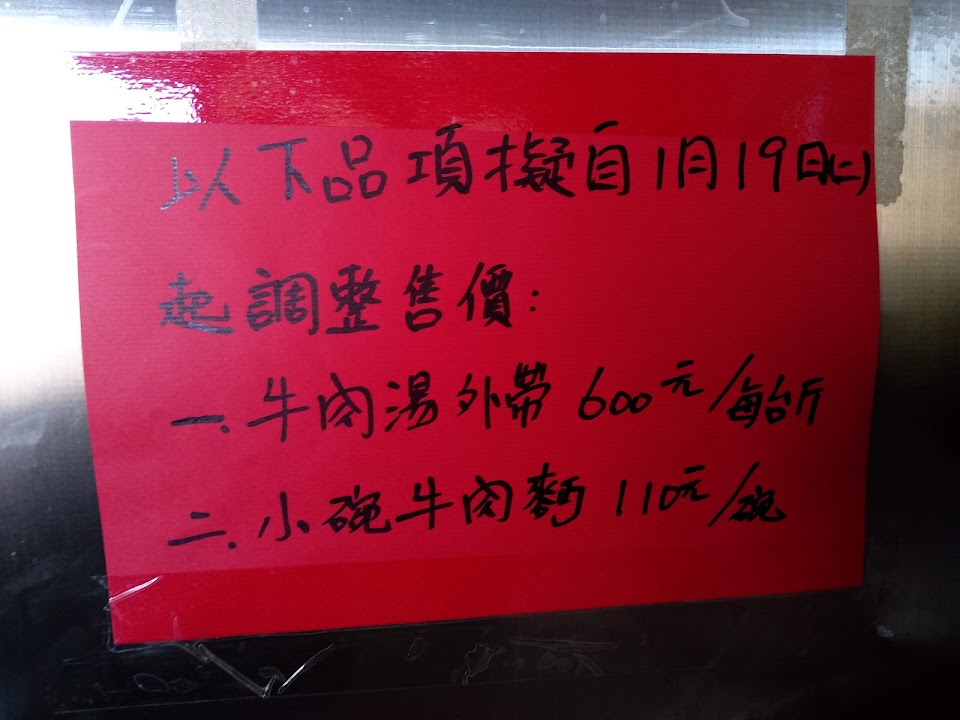 以下品項擬自1月19日(二)
起調整售價:
一.牛肉湯外帶 600元/每台斤
二.小碗牛肉麵 110元/碗